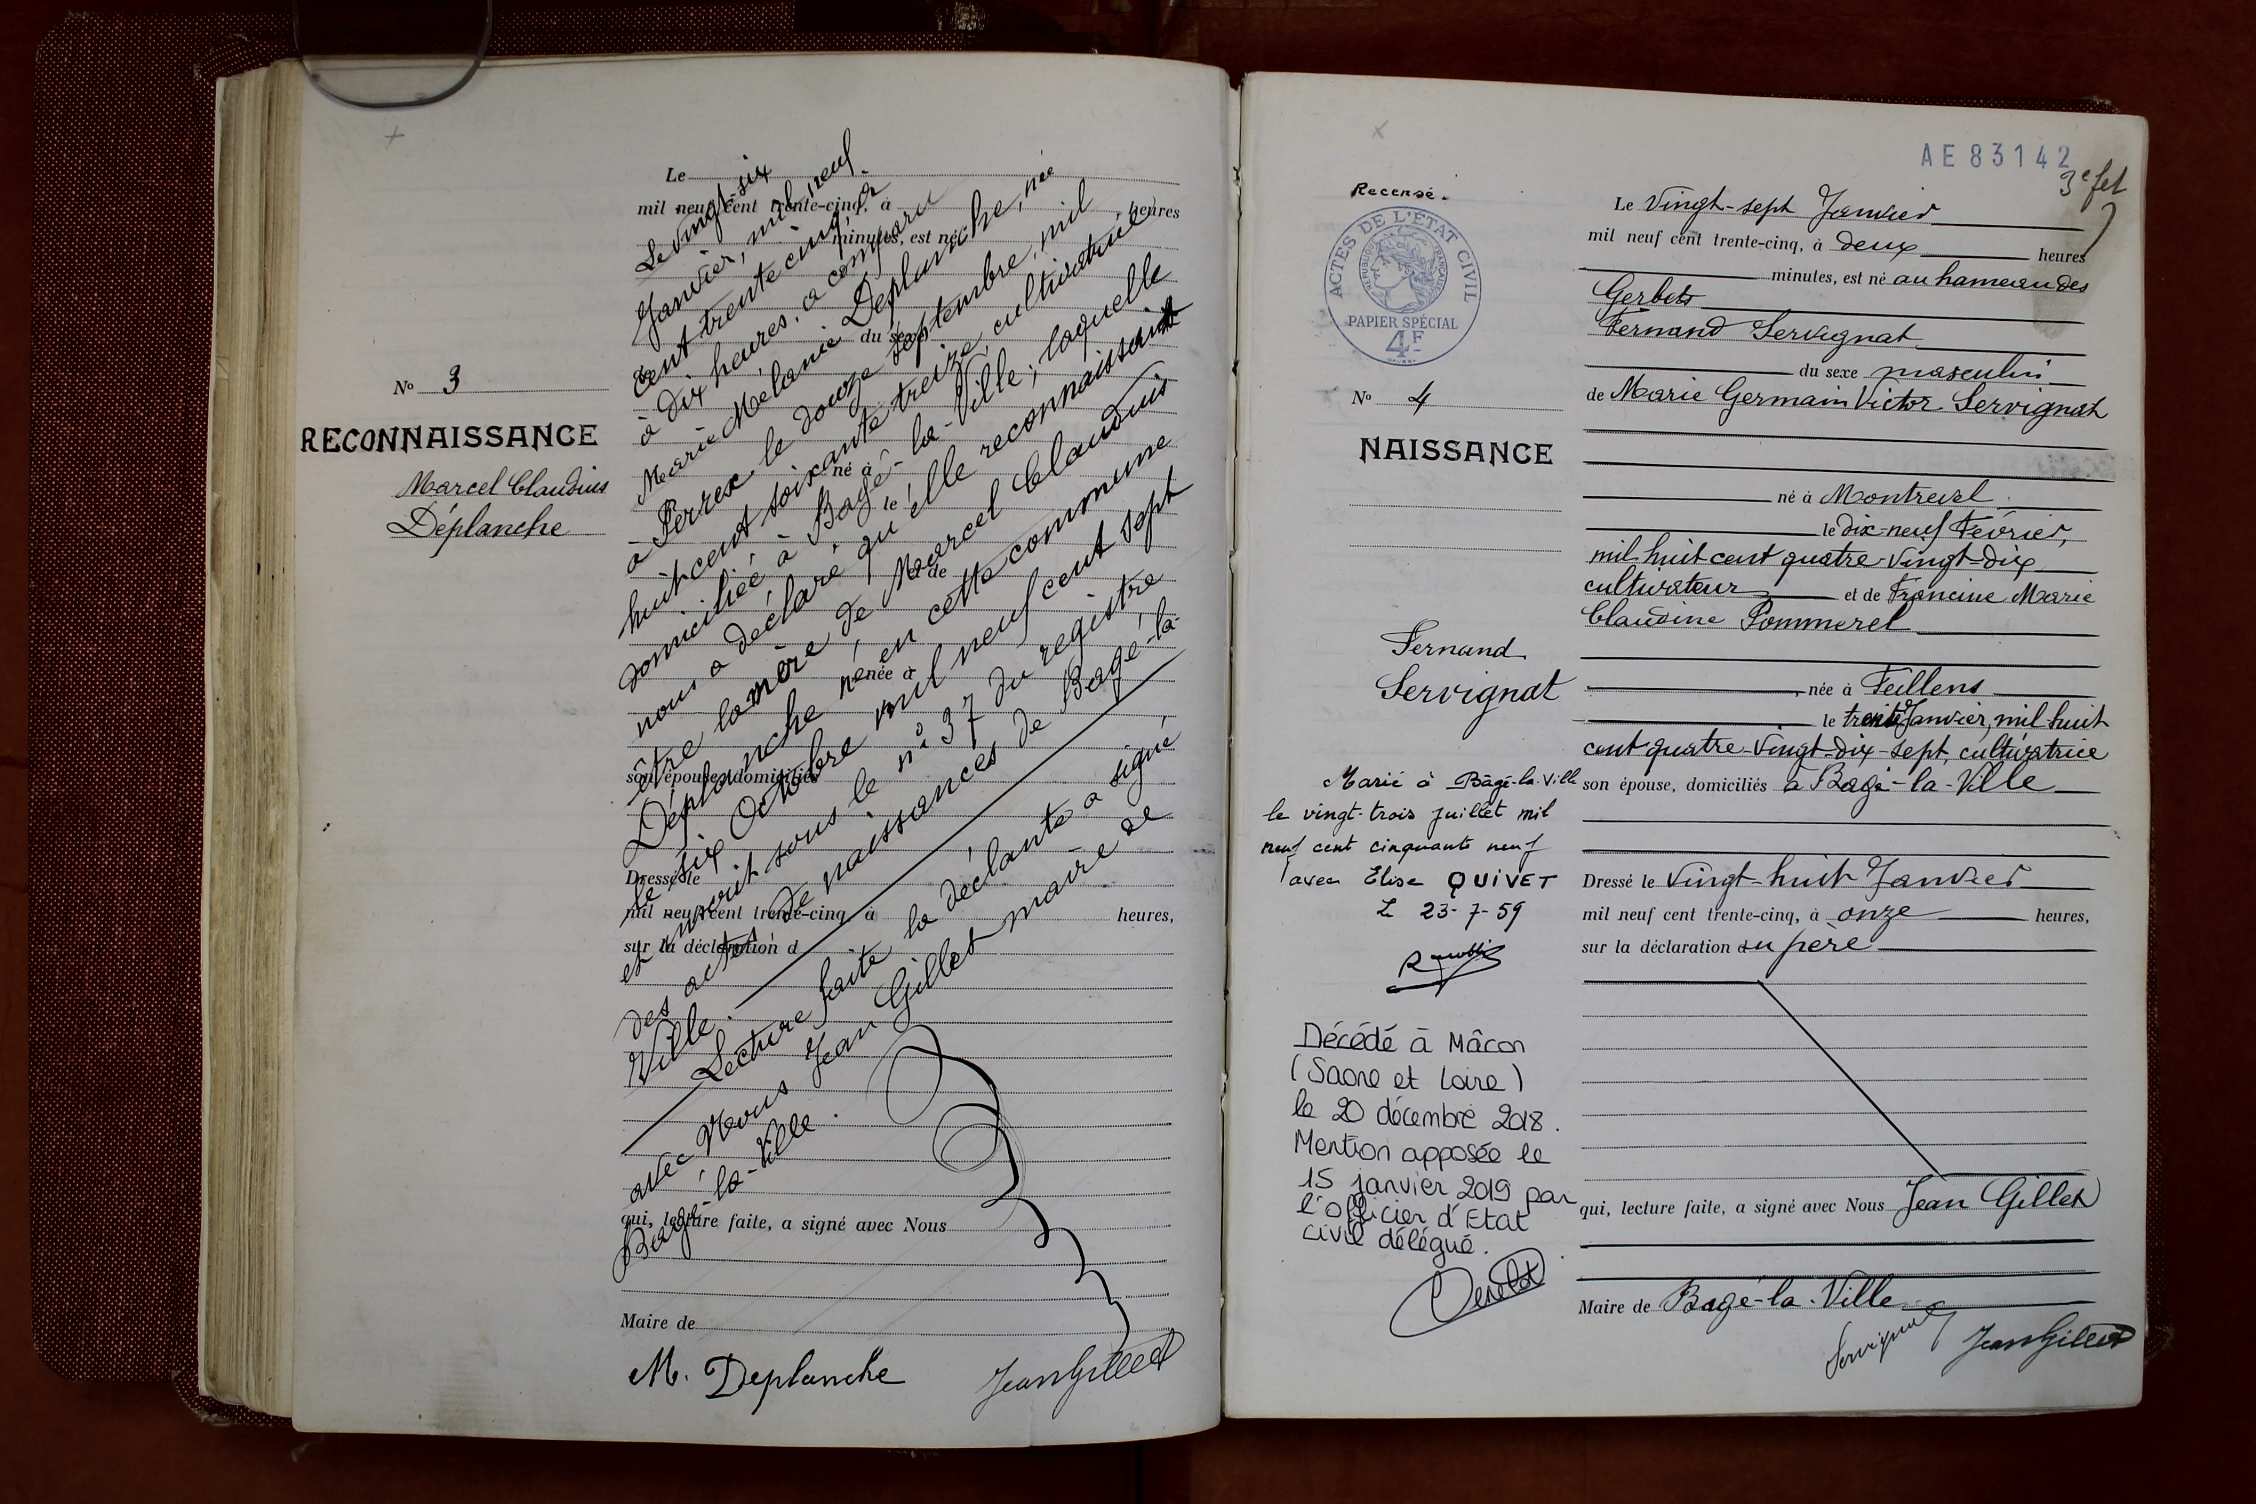 Nº 3
RECONNAISSANCE
Marcel Claudius
Déplanche
Le
mil neuf cent trente-cinq, à heures
minutes, est né
du sexe
né à
le
et de
née à
son épouse, domiciliés
Dressé le
mil neuf cent trente-cinq, à heures,
sur la déclaration d
qui, lecture faite, a signé avec Nous
Maire de
Le vingt-six
Janvier, mil neuf
cent trente cinq
à dix heures, a comparu
Marie Mélanie Déplanche, née
à Perrex le douze septembre, mil
huit cent soixante treize, cultivatrice
domiciliée à Bagé-la-Ville; laquelle
nous a déclaré qu'elle reconnaissait
être la mère de Marcel Claudius
Déplanche né en cette commune
le six Octobre mil neuf cent sept
et inscrit sous le nº 37 du registre
des actes de naissances de Bagé-la-
Ville.
Lecture faite la déclarante a signé
avec Nous Jean Gillet maire de
Bagé-la-Ville.
M. Deplanche
Jean Gillet
AE 83142
3e fet
Recensé.
ACTES DE L'ETAT CIVIL
REPUBLIQUE FRANÇAISE
PAPIER SPÉCIAL
4F
Nº 4
NAISSANCE
Fernand
Servignat
Marié à Bâgé-la-Ville
le vingt-trois juillet mil
neuf cent cinquante neuf
avec Elise QUIVET
L 23-7-59
Décédé à Mâcon
(Saone et Loire)
le 20 décembre 2018.
Mention apposée le
15 janvier 2019 par
l'officier d'Etat
civil délégué.
Le Vingt-sept Janvier
mil neuf cent trente-cinq, à deux heures
minutes, est né au hameau des
Gerbets
Fernand Servignat
du sexe masculin
de Marie Germain Victor Servignat
né à Montrevel
le dix-neuf Février,
mil huit cent quatre-vingt-dix
cultivateur et de Francine Marie
Claudine Pommerel
née à Feillens
le trente Janvier, mil huit
cent quatre-vingt-dix-sept, cultivatrice
son épouse, domiciliés à Bagé-la-Ville
Dressé le Vingt-huit Janvier
mil neuf cent trente-cinq, à onze heures,
sur la déclaration du père
qui, lecture faite, a signé avec Nous Jean Gillet
Maire de Bagé-la-Ville
Servignat
Jean Gillet